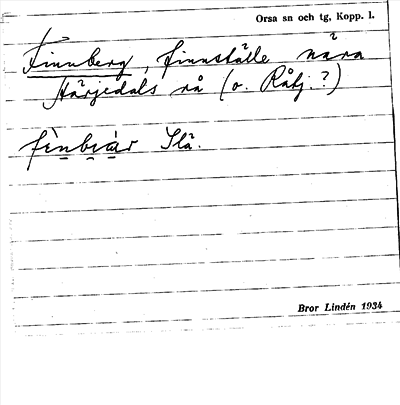 Orsa sn och tg, Kopp. l.
Finnberg, finnställe nära
Härjedals rå (o. Råfj.?)
fènbæ̀r Slä.
Bror Lindén 1934